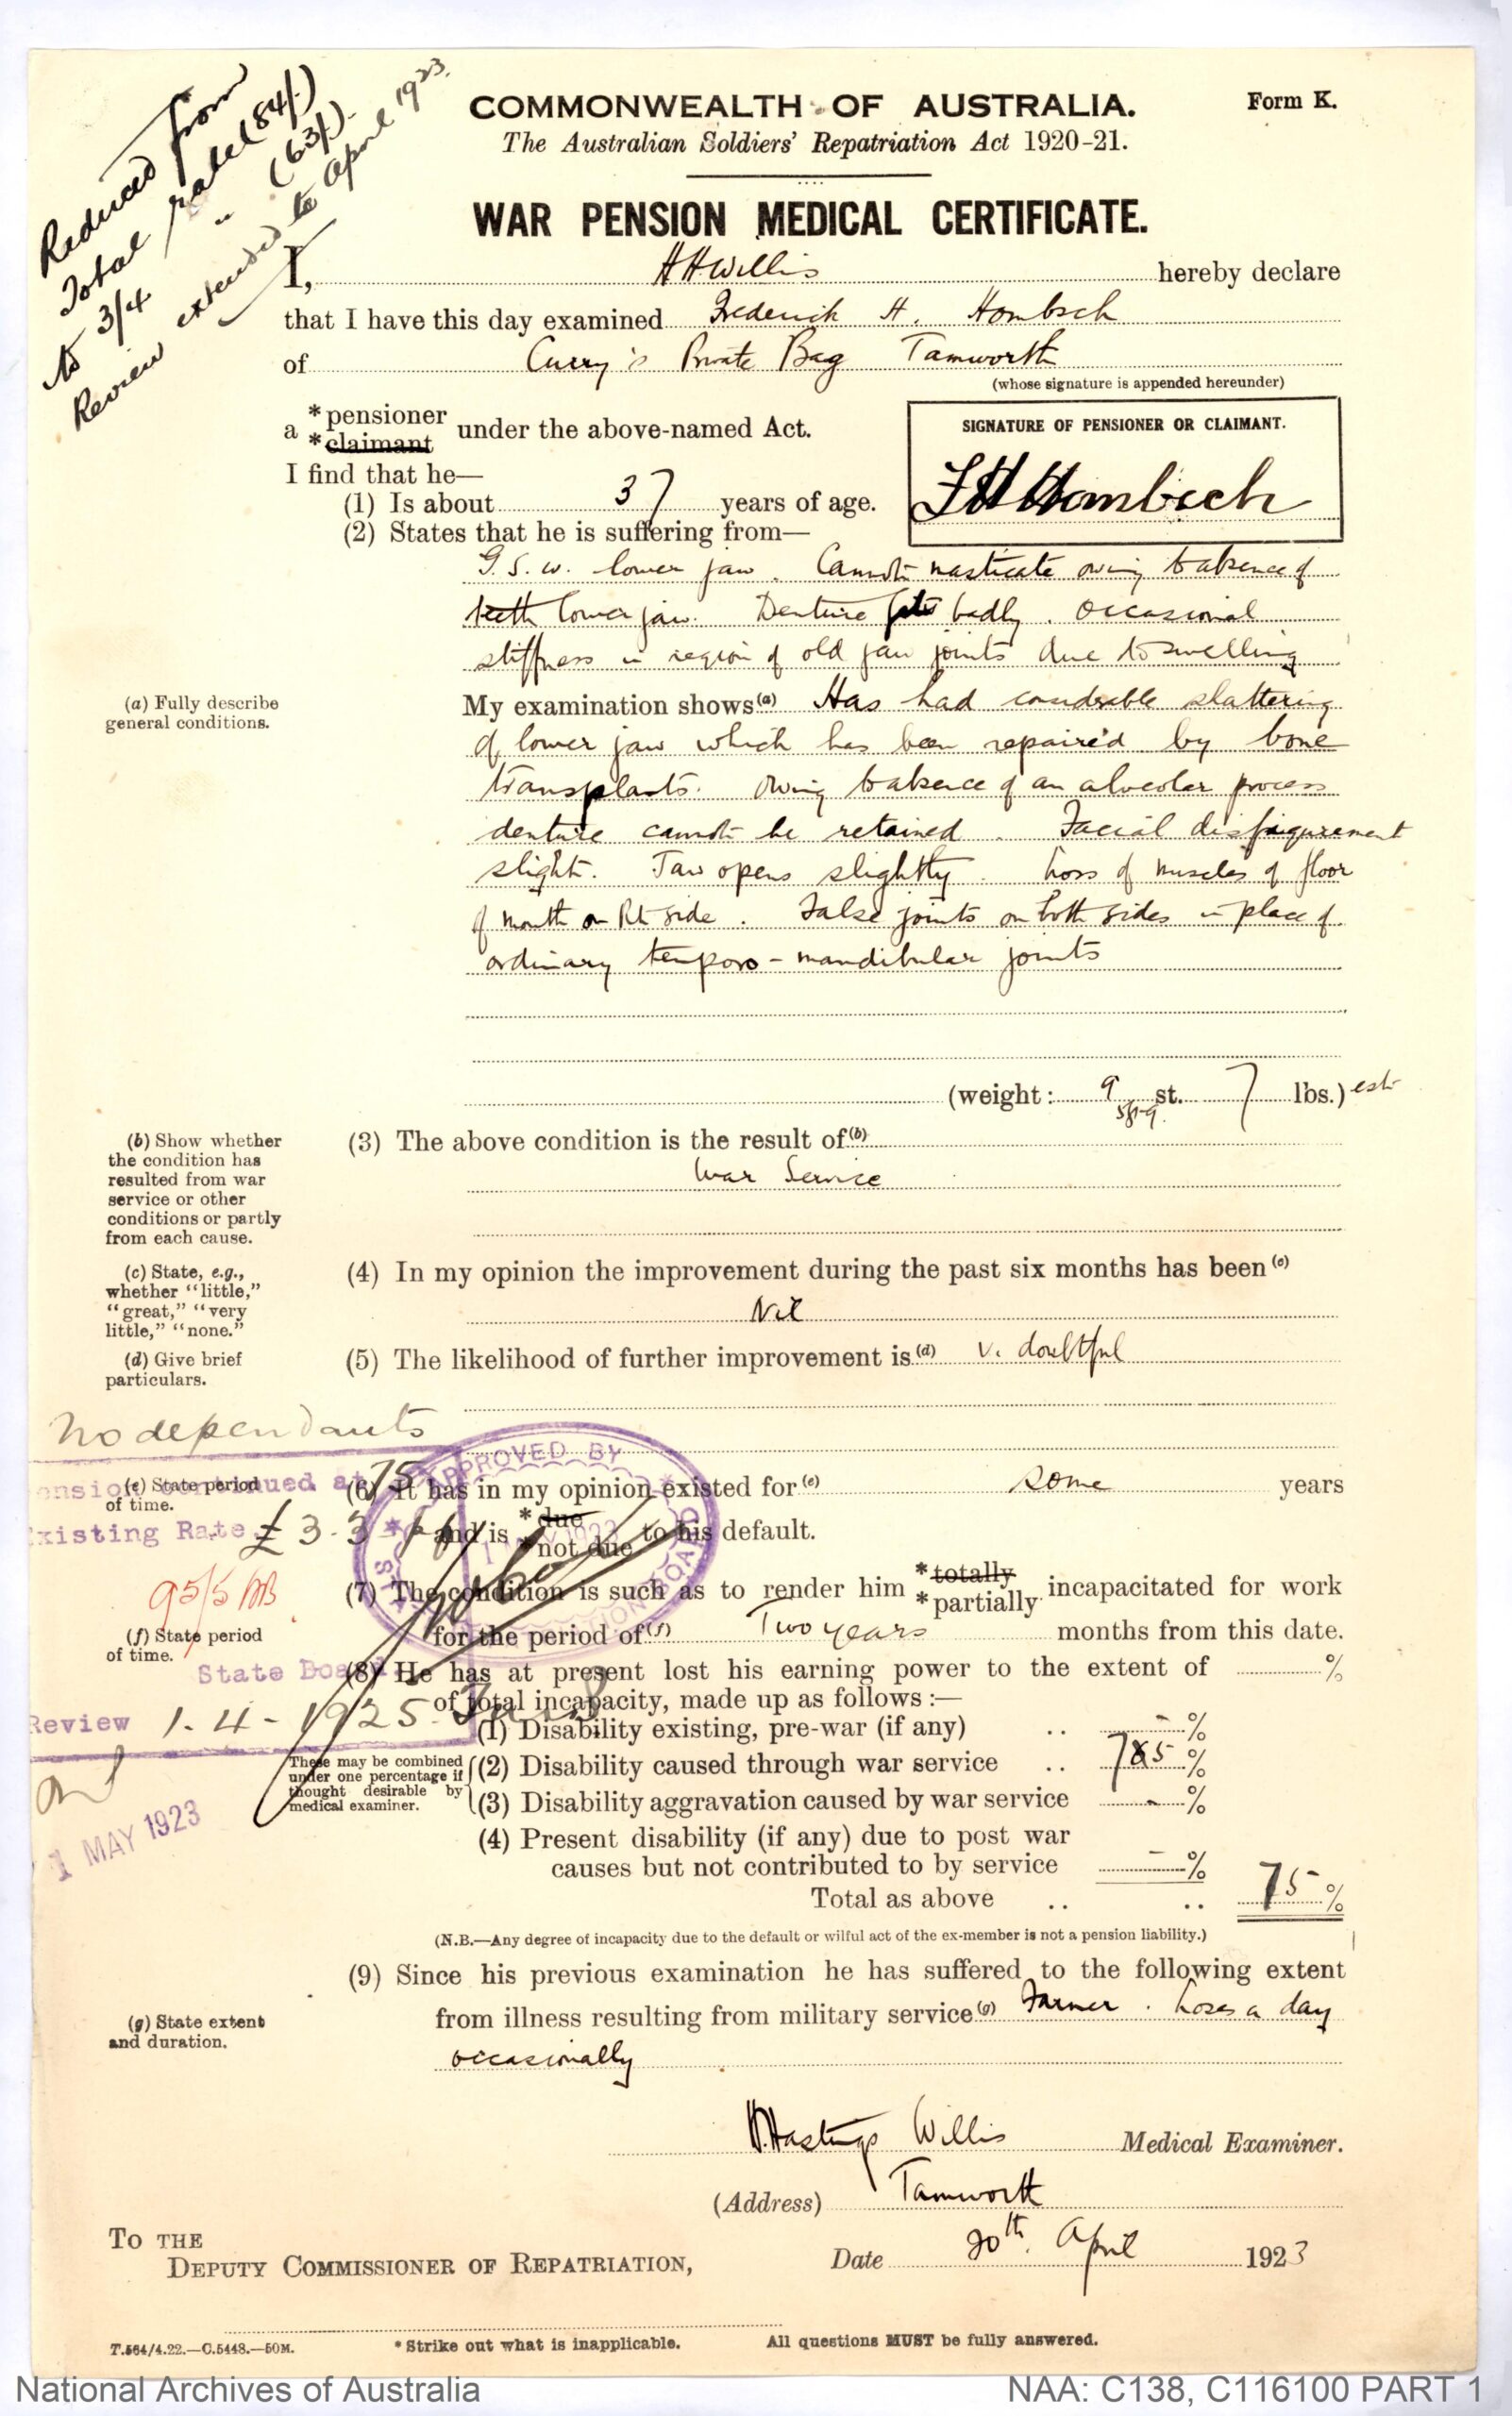 Reduced from
Total rate (84/-)
to 3/4 " (63/-).
Review extended to April 1923.
COMMONWEALTH OF AUSTRALIA.
Form K.
The Australian Soldiers' Repatriation Act 1920-21.
WAR PENSION MEDICAL CERTIFICATE.
I, HHWillis hereby declare
that I have this day examined Frederick H. Hombsch
of Curry's Private Bag Tamworth
(whose signature is appended hereunder)
a *pensioner
*claimant under the above-named Act.
SIGNATURE OF PENSIONER OR CLAIMANT.
FH Hombsch
I find that he—
(1) Is about 37 years of age.
(2) States that he is suffering from—
G.S.W. lower jaw. Cannot masticate owing to absence of
teeth lower jaw. Denture fits badly. Occasional
stiffness in region of old jaw joints due to swelling
(a) Fully describe
general conditions.
My examination shows (a) Has had considerable shattering
of lower jaw which has been repaired by bone
transplants. Owing to absence of an alveolar process
denture cannot be retained. Facial disfigurement
slight. Jaw opens slightly. Loss of muscles of floor
of mouth on Rt side. False joints on both sides in place of
ordinary temporo-mandibular joints
(weight: 9 st. 7 lbs.) est
(b) Show whether
the condition has
resulted from war
service or other
conditions or partly
from each cause.
(3) The above condition is the result of (b)
War Service
(c) State, e.g.,
whether "little,"
"great," "very
little," "none."
(4) In my opinion the improvement during the past six months has been (c)
Nil
(d) Give brief
particulars.
(5) The likelihood of further improvement is (d) v. doubtful
No dependants
APPROVED BY
Pension continued at 75
(e) State period
of time.
(6) It has in my opinion existed for (e) some years
Existing Rate £3.3
and is *due
*not due to his default.
(7) The condition is such as to render him *totally
*partially incapacitated for work
(f) State period
of time.
for the period of (f) Two years months from this date.
State Board
(8) He has at present lost his earning power to the extent of %
of total incapacity, made up as follows:—
Review 1-4-1925
(1) Disability existing, pre-war (if any) .. - %
These may be combined
under one percentage if
thought desirable by
medical examiner.
(2) Disability caused through war service .. 75 %
(3) Disability aggravation caused by war service - %
1 MAY 1923
(4) Present disability (if any) due to post war
causes but not contributed to by service - %
Total as above .. .. 75 %
(N.B.—Any degree of incapacity due to the default or wilful act of the ex-member is not a pension liability.)
(9) Since his previous examination he has suffered to the following extent
(g) State extent
and duration.
from illness resulting from military service (g) Farmer. Loses a day
occasionally
H.Hastings Willis Medical Examiner.
(Address) Tamworth
To THE
DEPUTY COMMISSIONER OF REPATRIATION,
Date 20th April 1923
T.564/4.22.—C.5448.—50M.
* Strike out what is inapplicable.
All questions MUST be fully answered.
National Archives of Australia
NAA: C138, C116100 PART 1